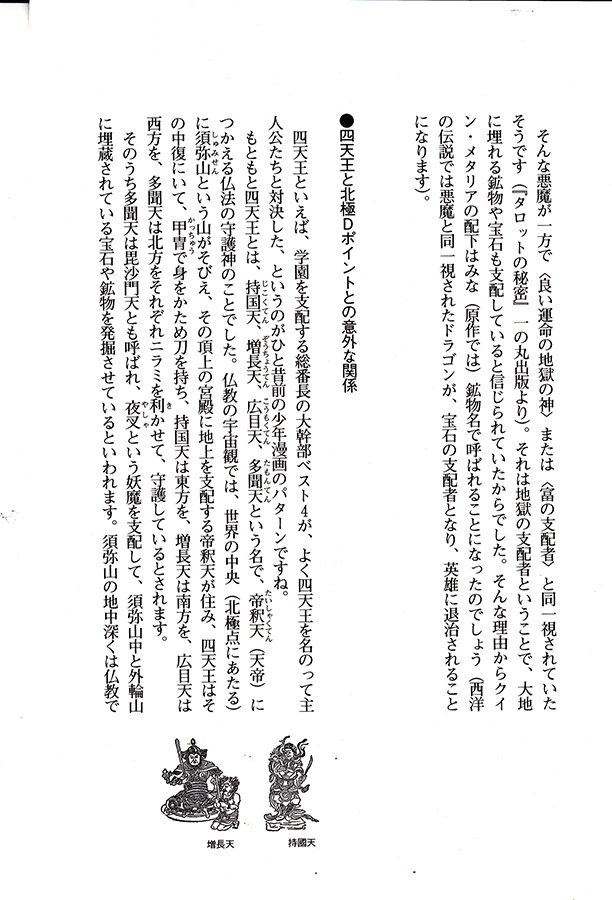 そんな悪魔が一方で〈良い運命の地獄の神〉または〈富の支配者〉と同一視されていた
そうです(『タロットの秘密』一の丸出版より)。それは地獄の支配者ということで、大地
に埋れる鉱物や宝石も支配していると信じられていたからでした。そんな理由からクイ
ン・メタリアの配下はみな(原作では)鉱物名で呼ばれることになったのでしょう(西洋
の伝説では悪魔と同一視されたドラゴンが、宝石の支配者となり、英雄に退治されること
になります)。
●四天王と北極Dポイントとの意外な関係
四天王といえば、学園を支配する総番長の大幹部ベスト4が、よく四天王を名のって主
人公たちと対決した、というのがひと昔前の少年漫画のパターンですね。
もともと四天王とは、持国天、増長天、広目天、多聞天という名で、帝釈天(天帝)に
つかえる仏法の守護神のことでした。仏教の宇宙観では、世界の中央(北極点にあたる)
に須弥山という山がそびえ、その頂上の宮殿に地上を支配する帝釈天が住み、四天王はそ
の中復にいて、甲冑で身をかため刀を持ち、持国天は東方を、増長天は南方を、広目天は
西方を、多聞天は北方をそれぞれニラミを利かせて、守護しているとされます。
そのうち多聞天は毘沙門天とも呼ばれ、夜叉という妖魔を支配して、須弥山中と外輪山
に埋蔵されている宝石や鉱物を発掘させているといわれます。須弥山の地中深くは仏教で
持國天
増長天